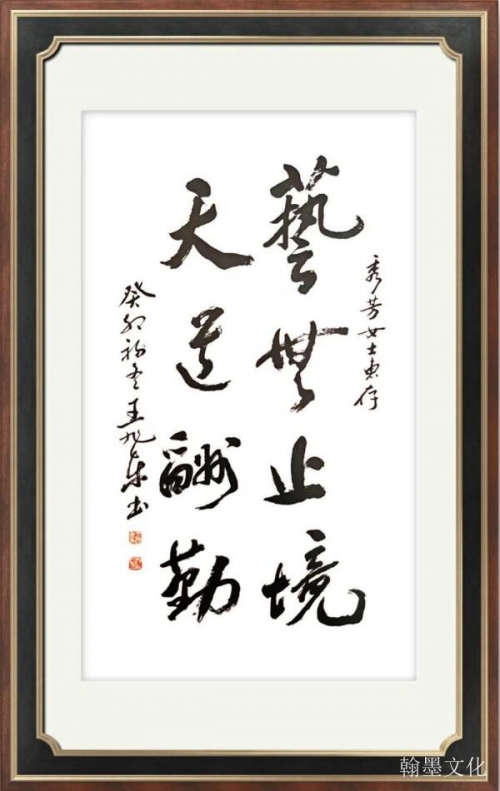 秀芳女士惠存
藝無止境
天道酬勤
癸卯初冬王旭东书
翰墨文化